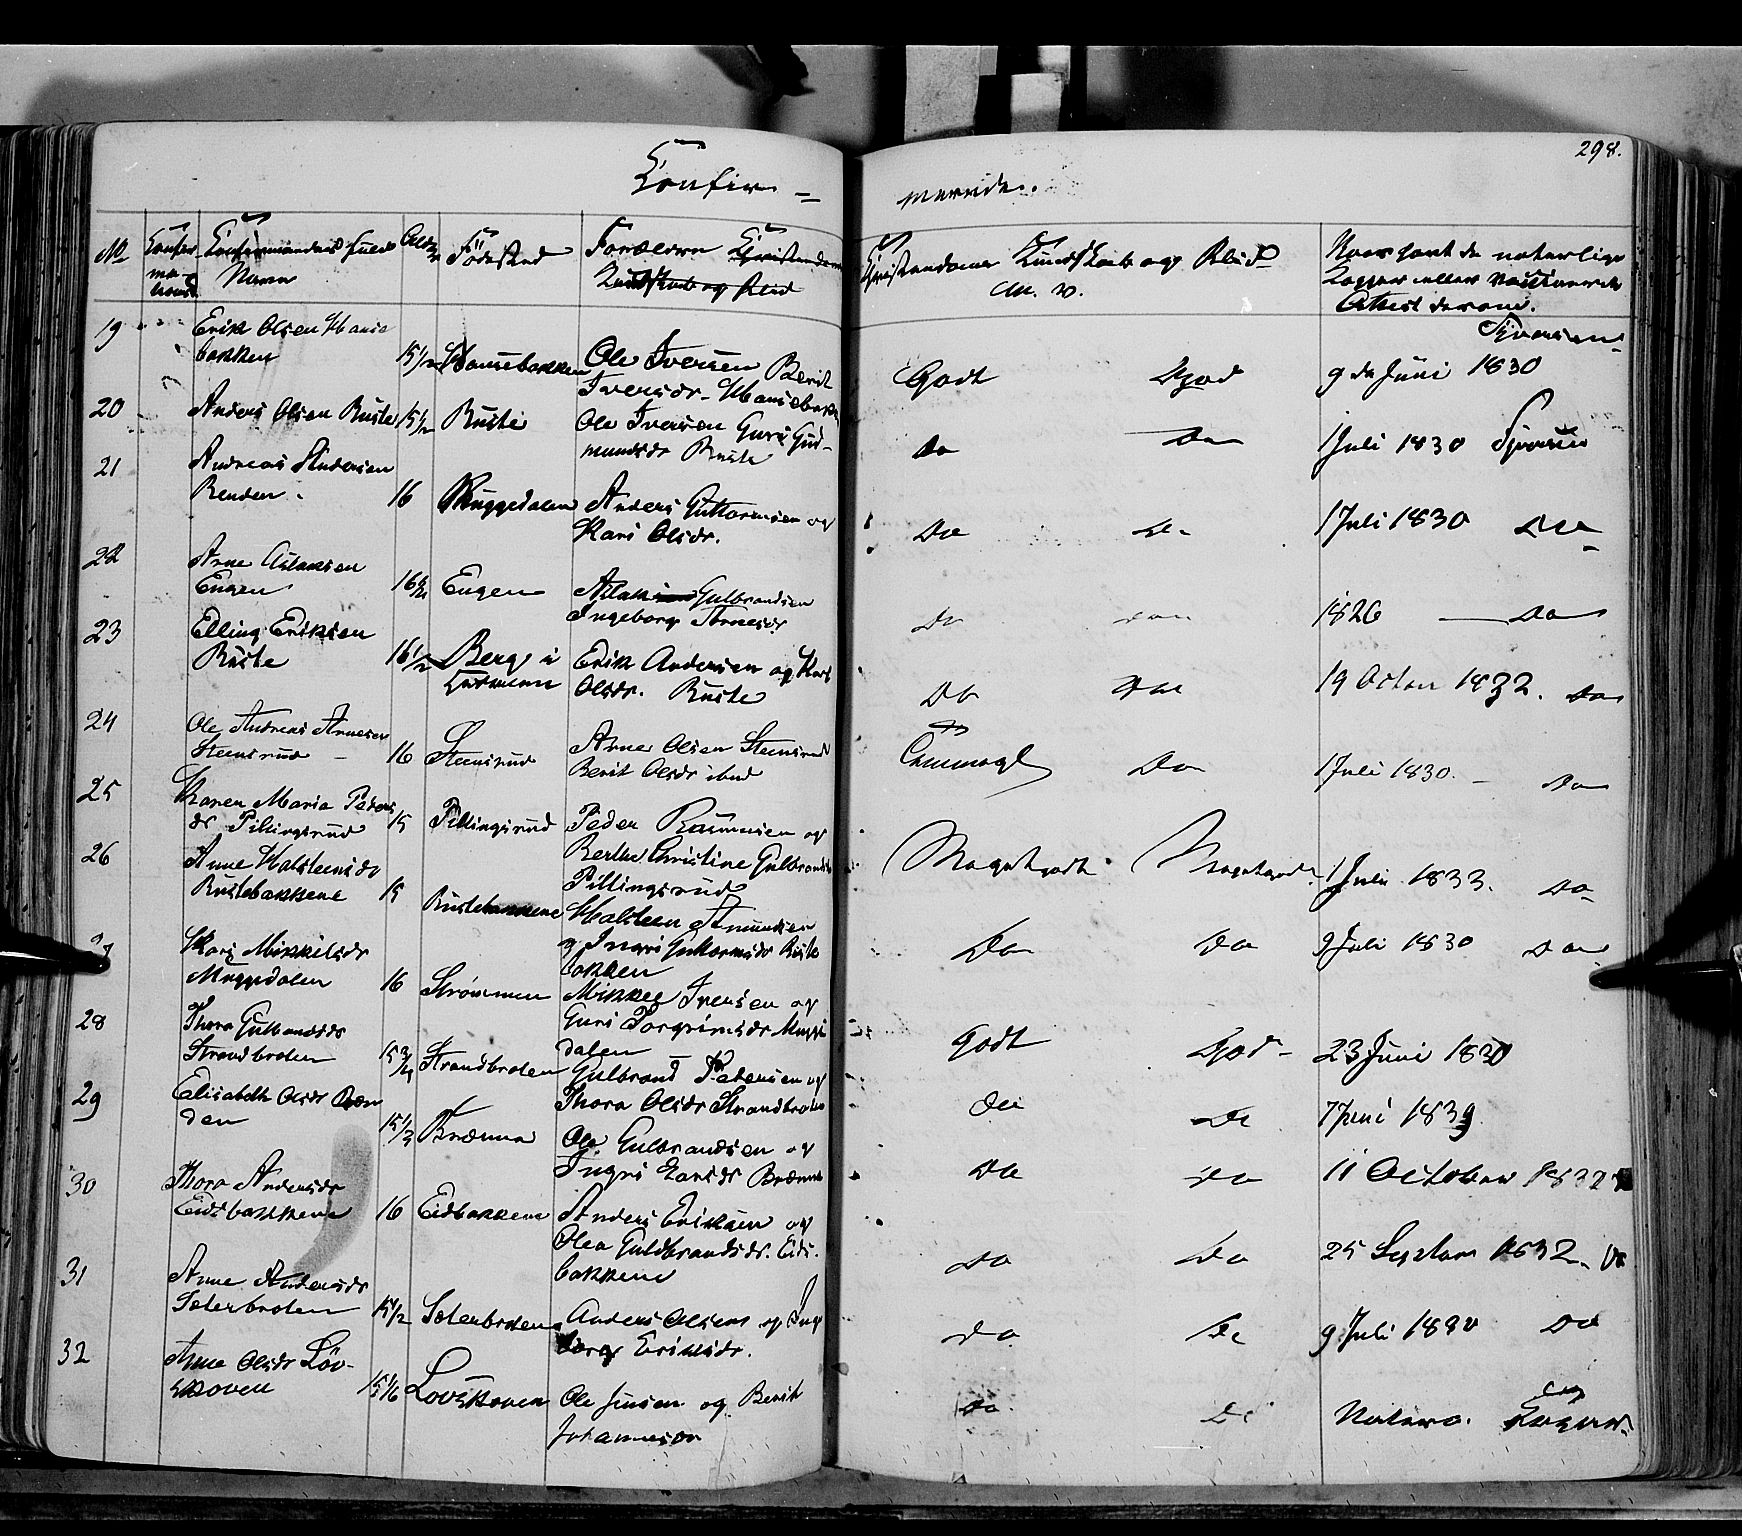 298.
Confir=
merede.
No
Confir
ma-
tions
Confirmandens fulde
Navn
Alder
Födested
Forældren Christendoms
Kundskab og Flid
Christendoms Kundskab og Flid
naturlige
Kopper eller vaccinerede
Attest derom.
19
Erik Olsen Hanse
bakken
15 1/2
Hansebakken
Ole Iversen Berit
Iversdr. Hansebakk
Godt
God
9de Juni 1830
20
Anders Olsen Ruste
15 1/2
Ruste
Ole Iversen Guri Gud-
mundsdr Ruste
Do
Do
1 Juli 1830
21
Andreas Andersen
Renden
16
Muggedalen
Anders Guttormsen og
Kari Olsdr.
Do
Do
1 Juli 1830 Do
22
Arne Aslaksen
Engen
16
Engen
Aslak Gulbrandsen
Ingeborg Arnesdr
Do
Do
1826 Do
23
Elling Eriksen
Ruste
16 1/2
Berg i
Erik Andersen og Kari
Olsdr. Ruste
Do
Do
19 Octon 1832. Do
24
Ole Andreas Arnesen
Steensrud
16
Steensrud
Arne Olsen Steensrud
Berit Olsdr ibid
Do
1 Juli 1830. Do
25
Karen Maria Peders
dr Pillingsrud
15
Pillingsrud
Peder Rasmusen og
Berthe Christine Gulbrandsdr
Pillingsrud
Megetgodt
Megetgod
1 Juli 1833. Do
26
Anne Halsteensdr
Rustebakkene
15
Rustebakkene
Halsteen Amundsen
og Ingri Guttormsdr Ruste
bakken
Do
Do
9 Juli 1830 Do
27
Kari Mikkelsdr
Muggedalen
16
Strömmen
Mikkel Iversen og
Guri Torgrimsdr Mugge
dalen
Godt
God
23 Juni 1830
28
Thora Gulbrandsdr
Strandbroten
15 3/4
Strandbroten
Gulbrand Petersen og
Thora Olsdr Strandbroten
Do
Do
7 Juni 1839
29
Elisabeth Olsdr Bræn
den
15 1/2
Brænna
Ole Gulbrandsen og
Ingri Larsdr Brænna
Do
Do
11 October 1832
30
Thora Andersdr
Eidsbakkene
16
Eidbakkene
Anders Eriksen og
Olea Guldbrandsdr. Eids-
bakkene
Do
Do
25 Septem 1832. Do
31
Anne Andersdr
Sæterbroten
15 1/2
Sæterbroten
Anders Olsen og Inge
borg Eriksdr.
Do
Do
9 Juli 1830 Do
32
Anne Olsdr Löv-
skoven
15 1/6
Lövskoven
Ole Jensen og Berit
Johannesdr
Do
Do
Naturl. Kopper.